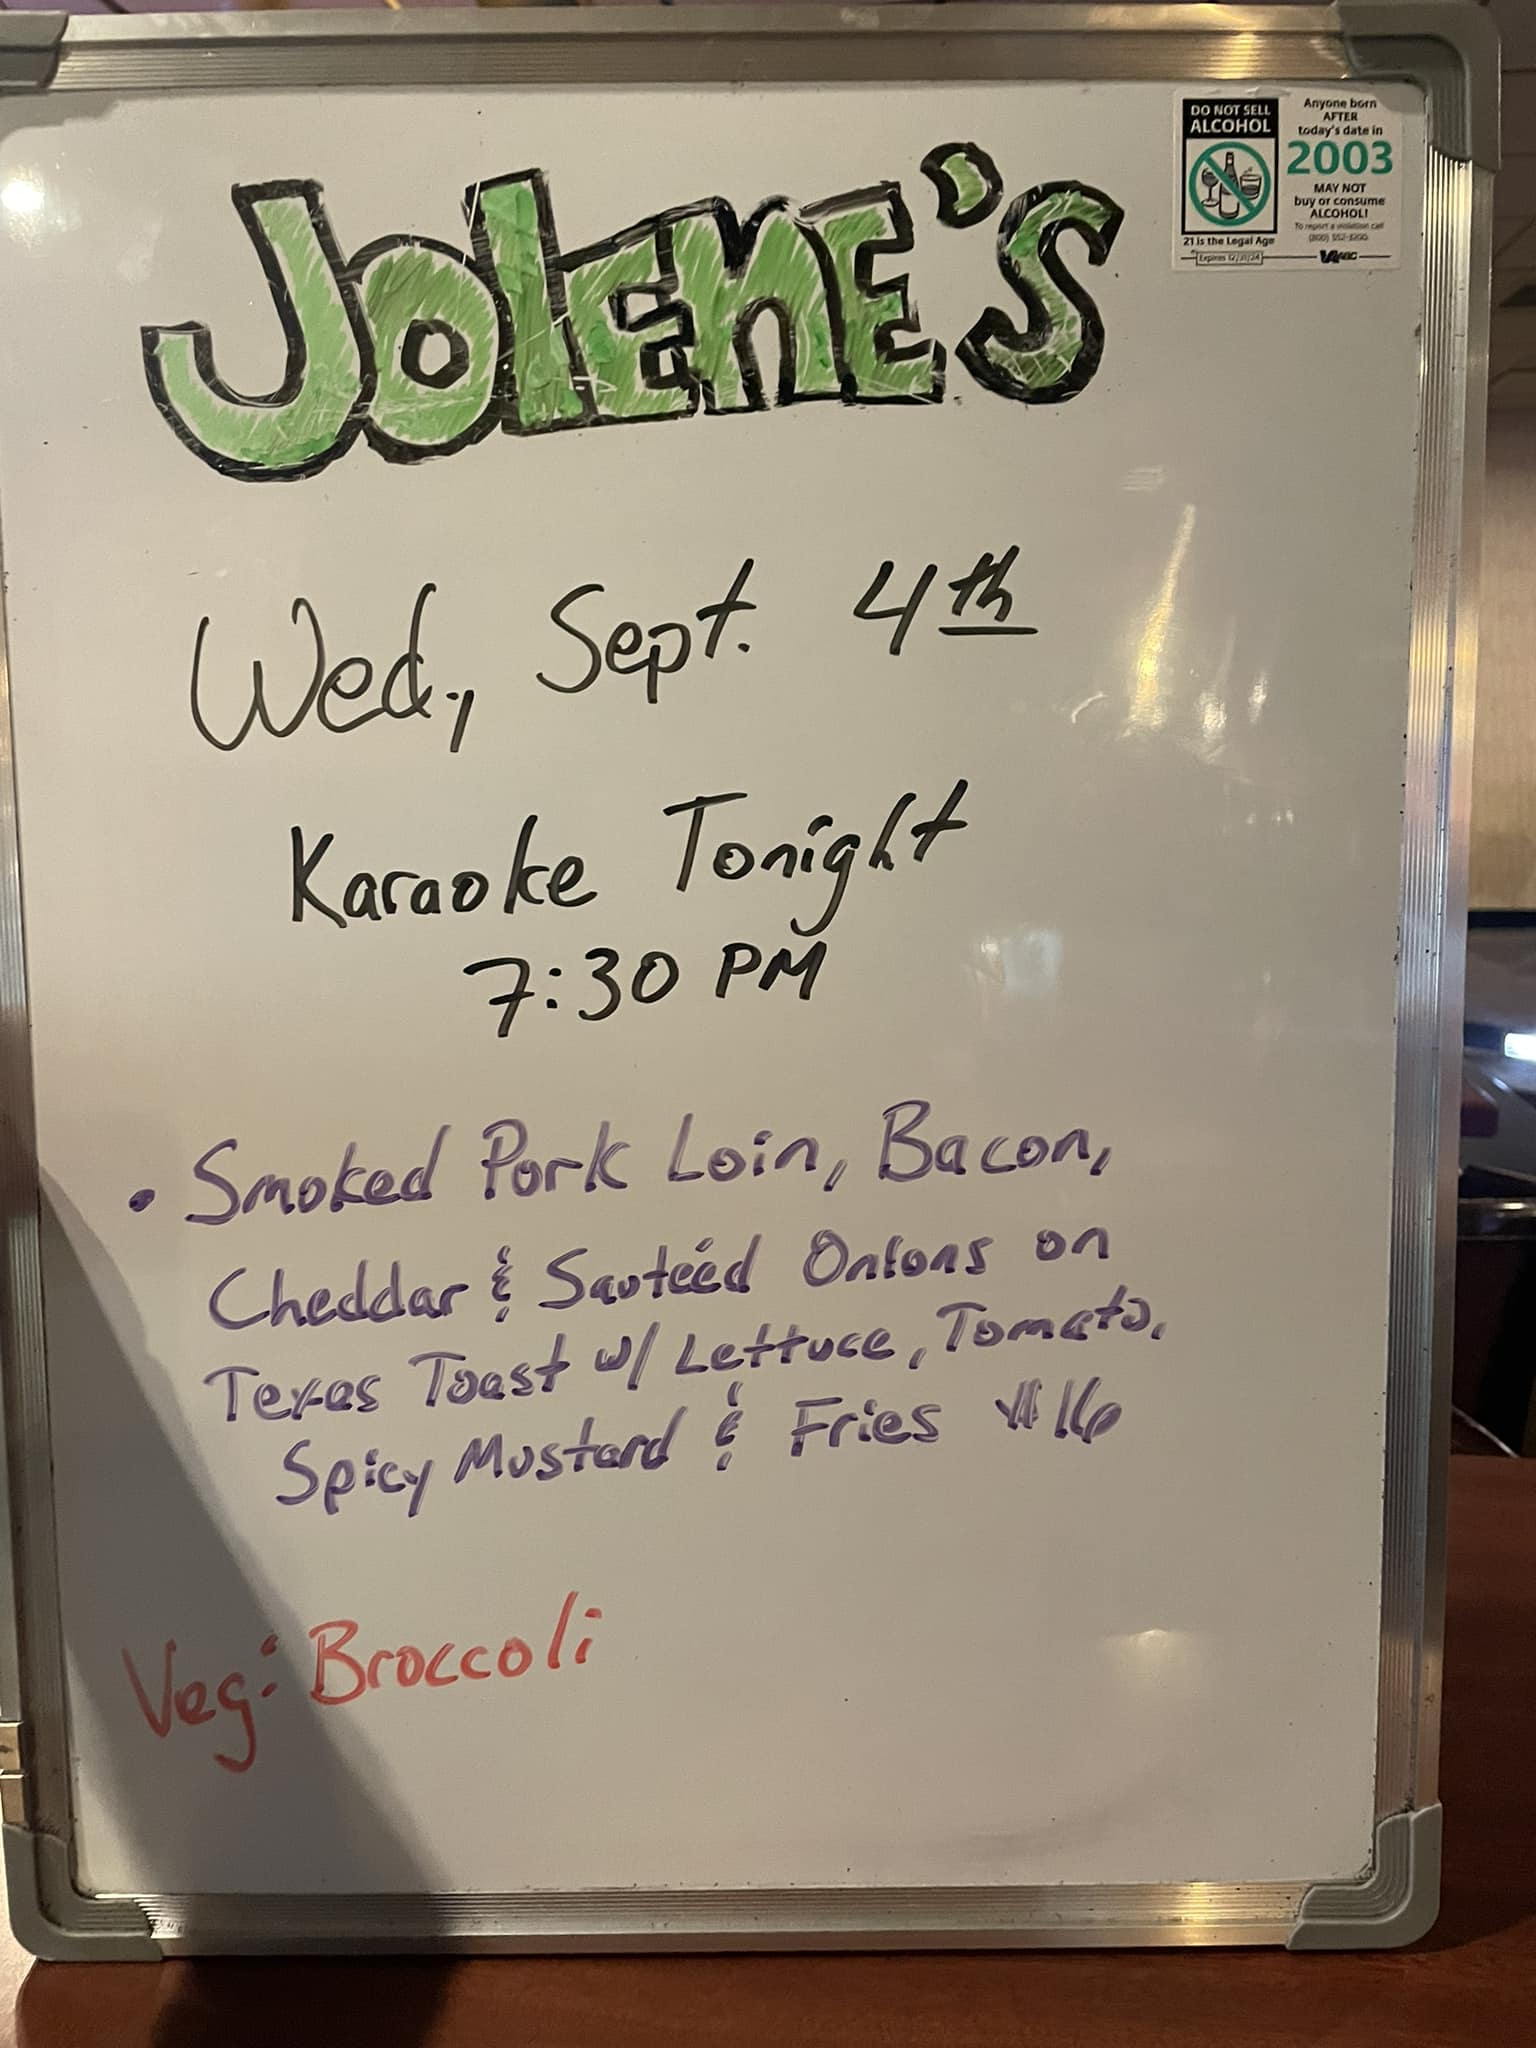 JOLENE'S
DO NOT SELL
ALCOHOL
21 is the Legal Age
Expires 12/31/24
Anyone born
AFTER
today's date in
2003
MAY NOT
buy or consume
ALCOHOL!
To report a violation call
ABC
Wed, Sept. 4th
Karaoke Tonight
7:30 PM
• Smoked Pork Loin, Bacon,
Cheddar & Sautéed Onions on
Texas Toast w/ Lettuce, Tomato,
Spicy Mustard & Fries $16
Veg: Broccoli